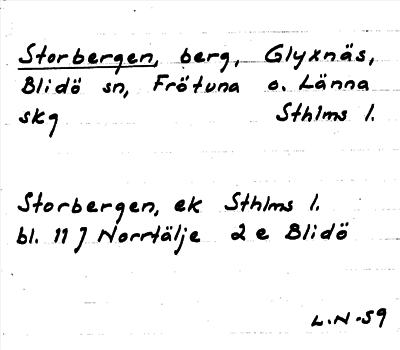 Storbergen, berg, Glyxnäs,
Blidö sn, Frötuna o. Länna
skg Sthlms l.
Storbergen, ek Sthlms l.
bl. 11 J Norrtälje 2 e Blidö
L.N-59